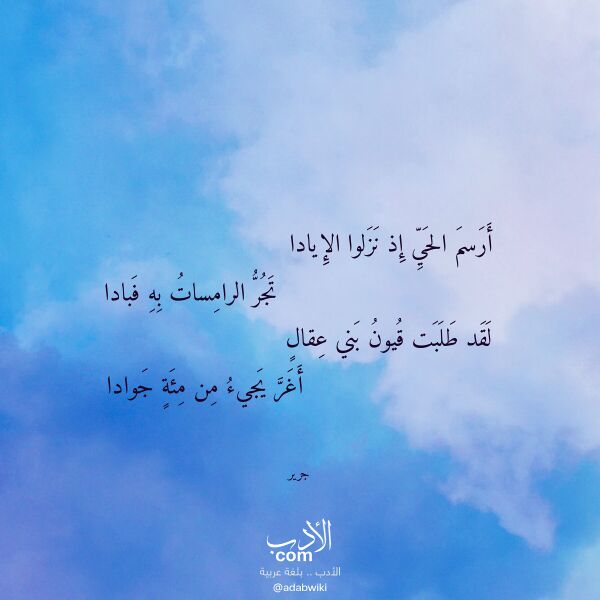 أَرَسمَ الحَيِّ إِذ نَزَلوا الإِيادا
تَجُرُّ الرامِساتُ بِهِ فَبادا
لَقَد طَلَبَت قُيونُ بَني عِقالٍ
أَغَرَّ يَجيءُ مِن مِئَةٍ جَوادا
جرير
الأدب
com
الأدب .. بلغة عربية
@adabwiki